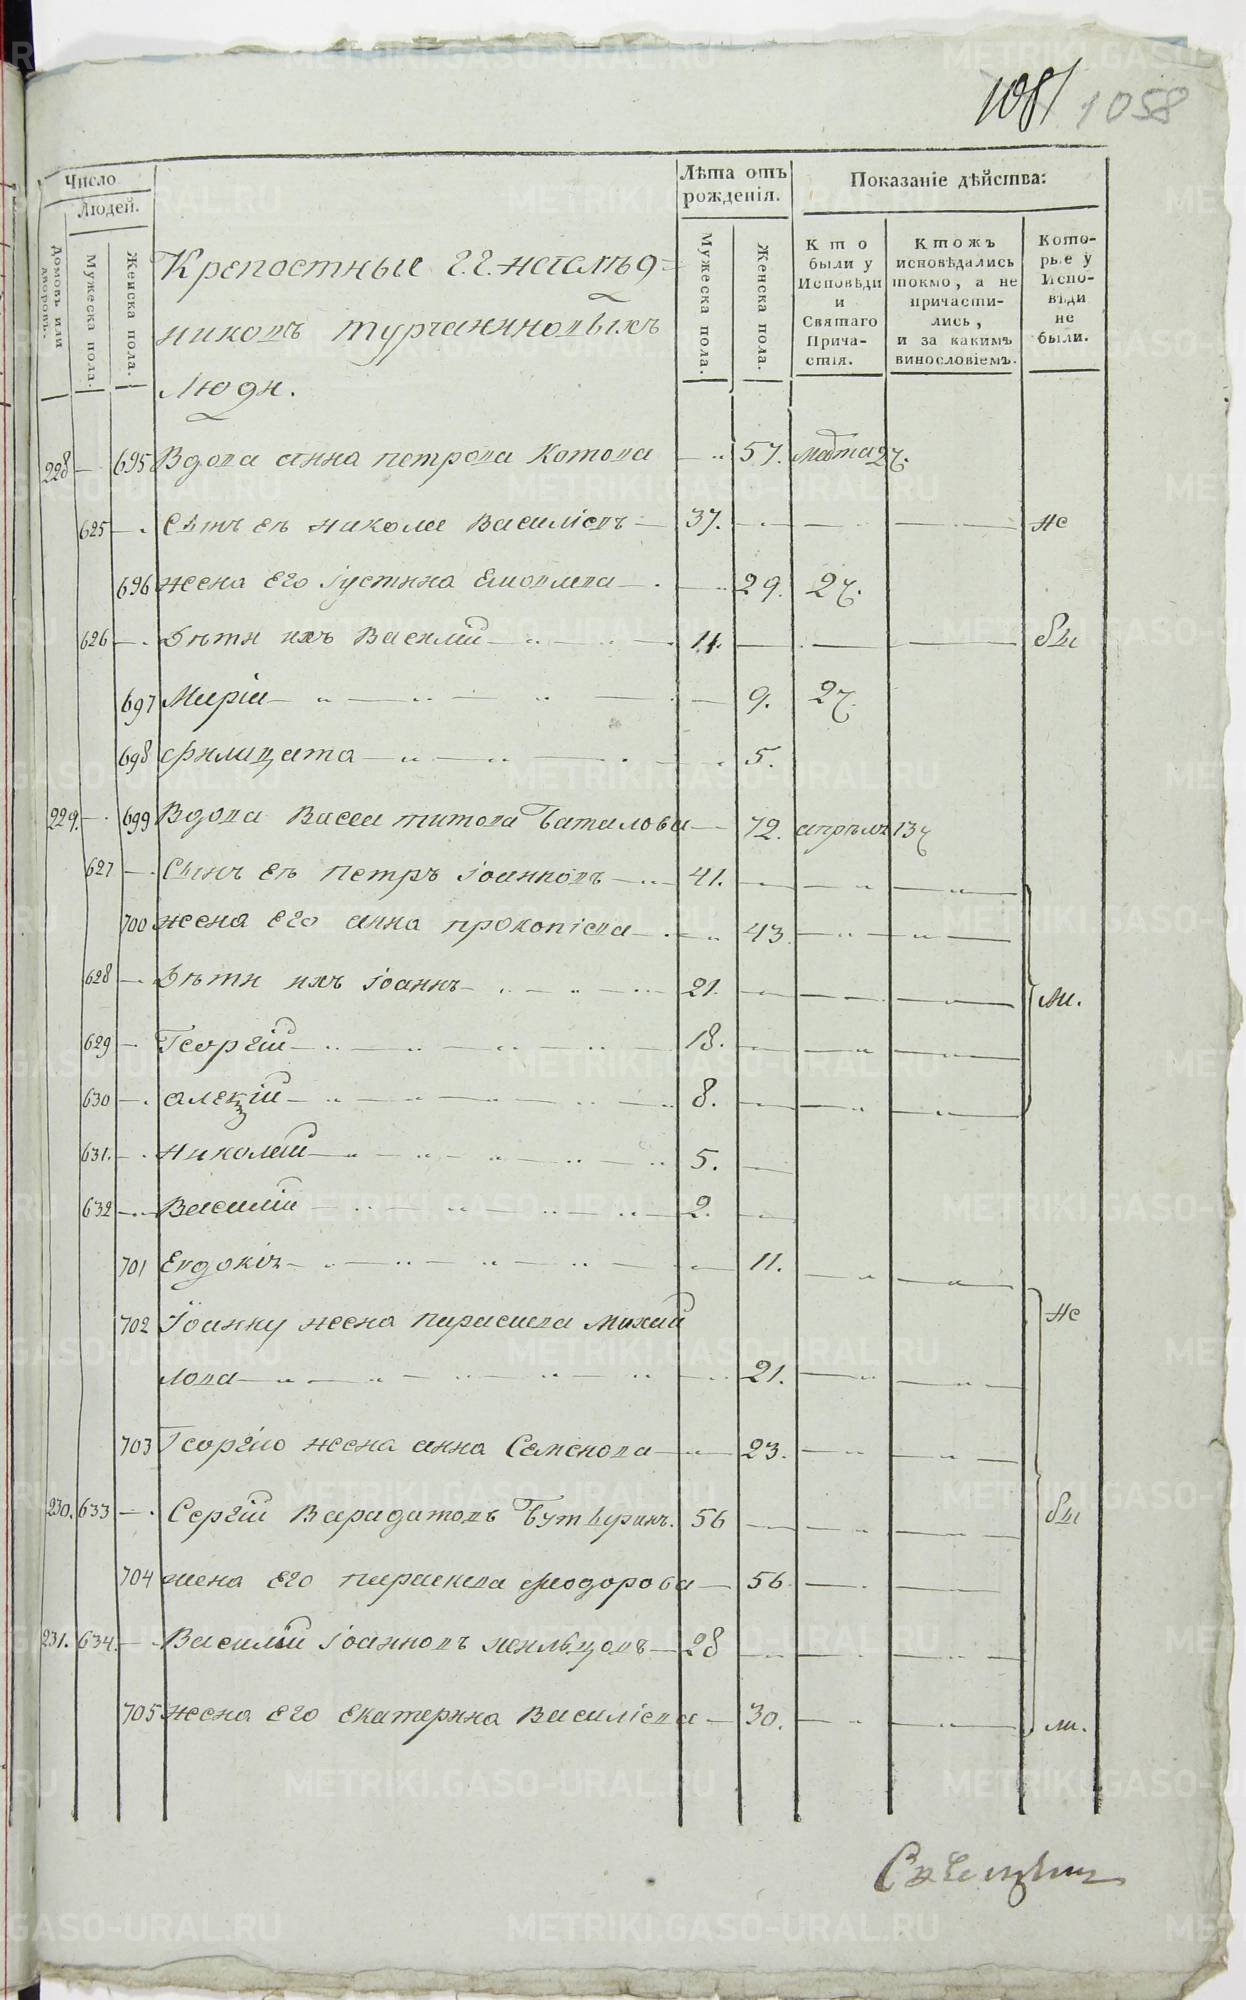 1081 1058
Число
Людей.
Домовъ или дворовъ.
Мужеска пола.
Женска пола.
Лѣта отъ рожденія.
Мужеска пола.
Женска пола.
Показаніе дѣйства:
Кто были у Исповѣди и Святаго Прича-стія.
Ктожъ исповѣдались токмо, а не причасти-лись, и за какимъ винословіемъ.
Кото-рые у Испо-вѣди не были.
Крепостные г.г. наслѣд=
никовъ Турчаниновыхъ
Люди.
228 — 695 Вдова Анна Петрова Котова — 57. Марта 27.
625 — Сынъ ея Николай Василіевъ — 37. — не
696 жена его Іустина — 29. 27.
626 — Дѣти ихъ Василій — 11. — бы
697 Марія — 9. 27.
698 Филицата — 5.
229. — 699 Вдова Васса Титова Баталова — 72. апрѣля 13
627 — Сынъ ея Петръ Іоанновъ — 41. —
700 жена его Анна Прокопіева — 43. —
628 — Дѣти ихъ Іоаннъ — 21. — ли.
629 — Георгій — 18. —
630 — Алекзій — 8. —
631. — Николай — 5. —
632 — Василій — 2. —
701 Евдокія — 11. —
702 Іоанну жена Параскева Михай не
лова — 21. —
703 Георгію жена Анна Семенова — 23. —
230. 633 — Сергій Варадатовъ — 56 — бы
704 жена его Параскева Феодорова — 56 —
231. 634. — Василій Іоанновъ — 28 —
705 жена его Екатерина Василіева — 30. — ли.